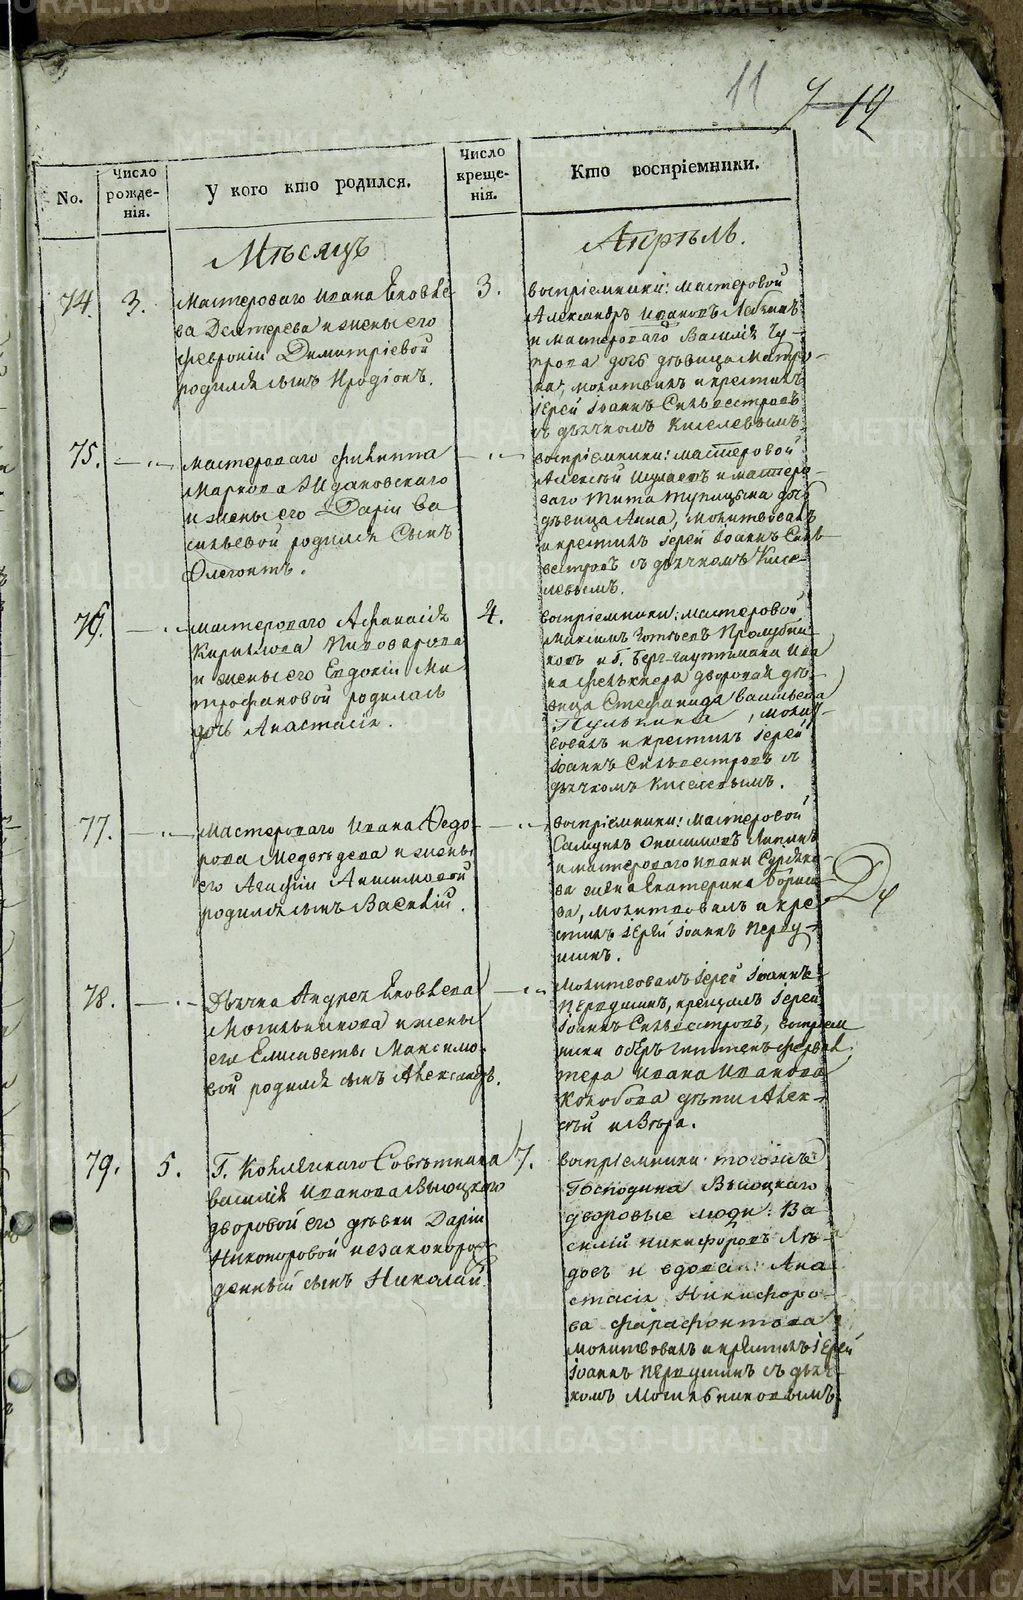 11 7 12
No.
Число рожде-
нія.
У кого кто родился.
Число
креще-
нія.
Кто воспріемники.
Мѣсяцъ
Апрѣль.
74. 3.
Мастероваго Ивана Яковле-
ва Дехтерева и жены его
Февроніи Димитріевой
родился сынъ Иродіонъ.
3.
воспріемники: мастеровой
Александръ Ивановъ
и мастероваго Василія Чу-
прова дочь дѣвица Матре-
на, молитвилъ и крестилъ
іерей Іоаннъ Сильвестровъ
съ дьячкомъ Киселевымъ.
75. — „ —
мастероваго Филиппа
Маркова Ждановскаго
и жены его Даріи Ва
сильевой родился Сынъ
Флегонтъ.
— „ —
воспріемники: мастеровой
Алексѣй и мастеро-
ваго Тита Тупицына дочь
дѣвица Анна, молитвовалъ
и крестилъ іерей Іоаннъ Силь-
вестровъ съ дьячкомъ Кисе-
левымъ.
76. — „ —
мастероваго Афанасія
Кирилова Пивоварова
и жены его Евдокіи Ми
трофановой родилась
дочь Анастасія.
4.
воспріемники: мастеровой
Максимъ Пролубни-
ковъ и Г. Берг-гауптмана Ива
на Фелькнера дворовая дѣ-
вица Стефанида Васильева
Пулькина, молит-
вовалъ и крестилъ іерей
Іоаннъ Сильвестровъ съ
дьячкомъ Киселевымъ.
77. — „ —
Мастероваго Ивана Ѳедо
рова Медвѣдева и жены
его Агафіи Анисимовой
родился сынъ Василій.
— „ —
воспріемники: мастеровой
Самуилъ Онисимовъ Липинъ
и мастероваго Ивана
ва жена Екатерина Борисо-
ва, молитвовалъ и кре
стилъ іерей Іоаннъ Перву-
шинъ.
78. — „ —
Дьячка Андрея Яковлева
Могильникова и жены
его Елисаветы Максимо-
вой родился сынъ Александръ.
— „ —
Молитвовалъ іерей Іоаннъ
Первушинъ, крещалъ іерей
Іоаннъ Сильвестровъ, воспріем
ники Оберъ гиттенъ фервал
тера Ивана Иванова
Колобова дѣти Алек-
сѣй и Вѣра.
79. 5.
Г. Коллежскаго Совѣтника
Василія Иванова Высоцкаго
дворовой его дѣвки Даріи
Никоноровой незаконоро-
жденный сынъ Николай.
7.
воспріемники тогожъ
Господина Высоцкаго
дворовые люди: Ва
силій Никифоровъ Лѣ-
довъ и вдова: Ана
стасія Никифоро-
ва Фарафонтова
молитвовалъ и крестилъ іерей
Іоаннъ Первушинъ съ дьяч-
комъ Могильниковымъ.
METRIKI.GASO-URAL.RU